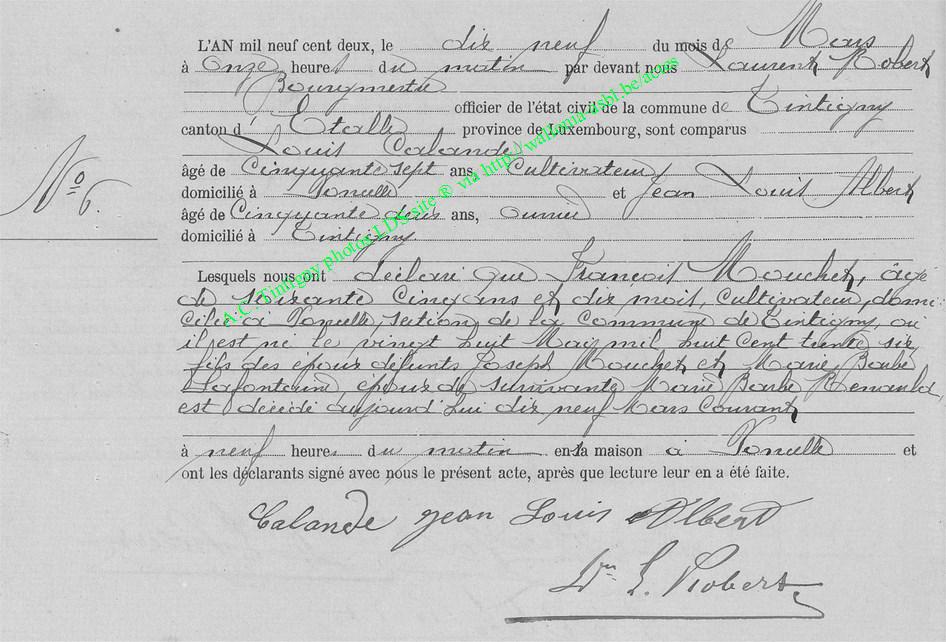 L'AN mil neuf cent deux, le dix neuf du mois de Mars
à Onze heures du matin par devant nous Laurent Robert
Bourgmestre officier de l'état civil de la commune de Tintigny
canton d'Etalle province de Luxembourg, sont comparus
Louis Calande
âgé de Cinquante sept ans, Cultivateur
domicilié à Poncelle et Jean Louis Albert
âgé de Cinquante deux ans, ouvrier
domicilié à Tintigny
Lesquels nous ont déclaré que François Mouchet, âgé
de soixante Cinq ans et dix mois, Cultivateur, domi-
cilié à Poncelle, section de la Commune de Tintigny, où
il est né le vingt huit Mai mil huit cent trente six
fils des époux défunts Joseph Mouchet et Marie Barbe
Lafontaine, époux de survivante Marie Barbe Renauld,
est décédé aujourd'hui dix neuf Mars Courant
à neuf heures du matin en sa maison à Poncelle et
ont les déclarants signé avec nous le présent acte, après que lecture leur en a été faite.
No 6.
Calande Jean Louis Albert
L. Robert
A.C. Tintigny photos LDS site ® via http://wallonia-asbl.be/actes